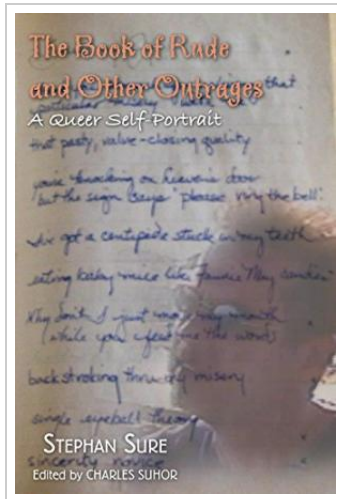 The Book of Rude
and Other Outrages
that
A Queer Self-Portrait
that pasty, valve-closing quality
you're knocking on heaven's door
but the sign says "please the bell"
I've got a centipede stuck in my teeth
eating baby mice like
Why don't I just my mouth
(while you feed me the words)
backstroking thru my misery
single eyeball theory
STEPHAN SURE
sincerity
Edited by CHARLES SUHOR